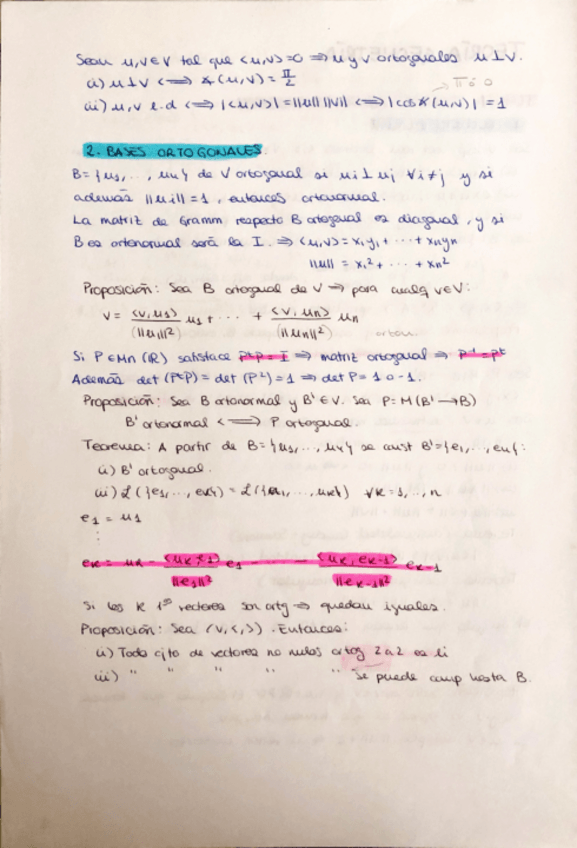 Sean u,v∈V tal que <u,v>=0 ⇒ u y v ortogonales u⊥v.
i) u⊥v ⟺ ∡(u,v) = π/2
π ó 0
ii) u,v l.d ⟺ |<u,v>| = ||u|| ||v|| ⟺ |cos∡(u,v)| = 1
2. BASES ORTOGONALES
B={u1,..., un} de V ortogonal si ui⊥uj ∀i≠j y si
además ||ui||=1, entonces ortonormal.
La matriz de Gramm respecto B ortogonal es diagonal, y si
B es ortonormal será la I. ⇒ <u,v> = x1y1 + ··· + xnyn
||u|| = x1² + ··· + xn²
Proposición: Sea B ortogonal de V ⇒ para cualq v∈V:
v = <v,u1>/(||u1||²) u1 + ··· + <v,un>/(||un||²) un
orton.
Si P∈Mn(ℝ) satisface PᵗP = I ⇒ matriz ortogonal ⇒ P⁻¹=Pᵗ
Además det(PᵗP) = det(P²) = 1 ⇒ det P = 1 o -1.
Proposición: Sea B ortonormal y B'∈V. Sea P = M(B'→B)
B' ortonormal ⟺ P ortogonal.
Teorema: A partir de B={u1,..., un} se const B'={e1,..., en}:
i) B' ortogonal.
ii) L({e1,..., ek}) = L({u1,..., uk}) ∀k=1,..,n
e1 = u1
⋮
ek = uk - <uk,e1>/||e1||² e1 - ··· - <uk,ek-1>/||ek-1||² ek-1
Si los k 1ºs vectores son ortg ⇒ quedan iguales.
Proposición: Sea (V,<,>). Entonces:
i) Todo cjto de vectores no nulos ortog 2a2 es li
ii) " " " " " se puede amp hasta B.